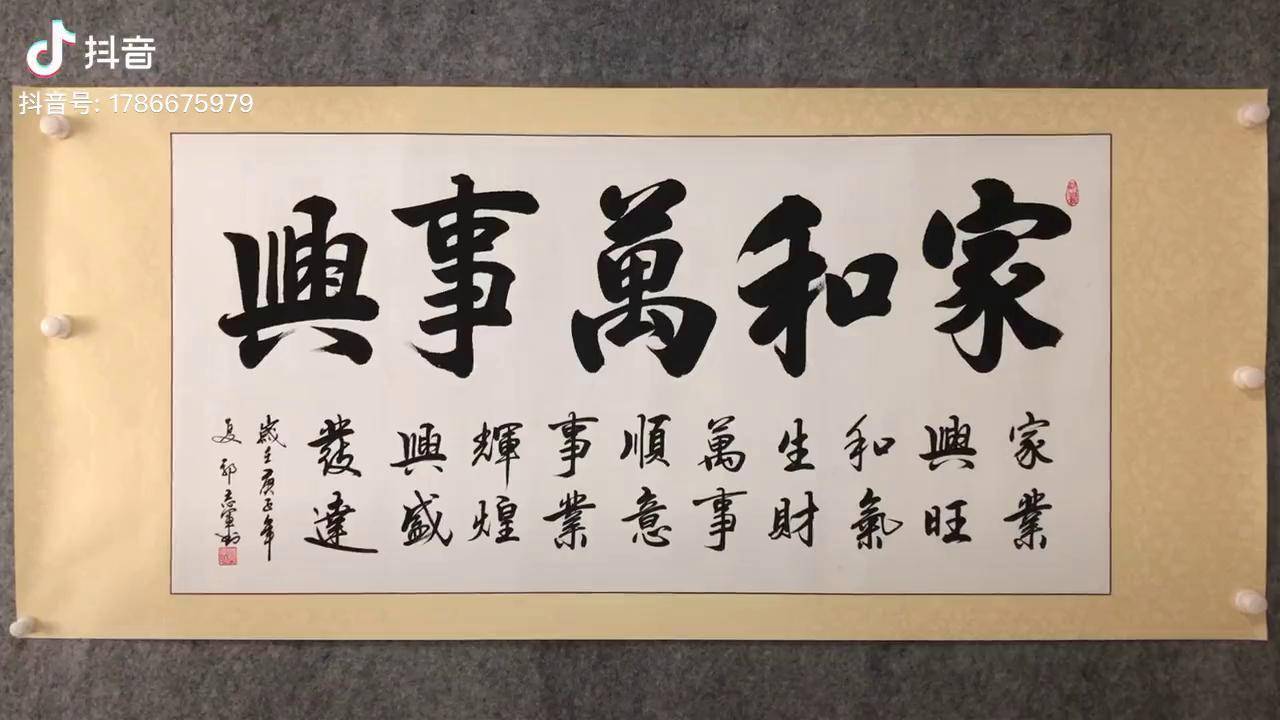 抖音
抖音号: 1786675979
家和萬事興
家業
興旺
和氣
生財
萬事
順意
事業
輝煌
興盛
發達
歲在庚子年
夏 郭